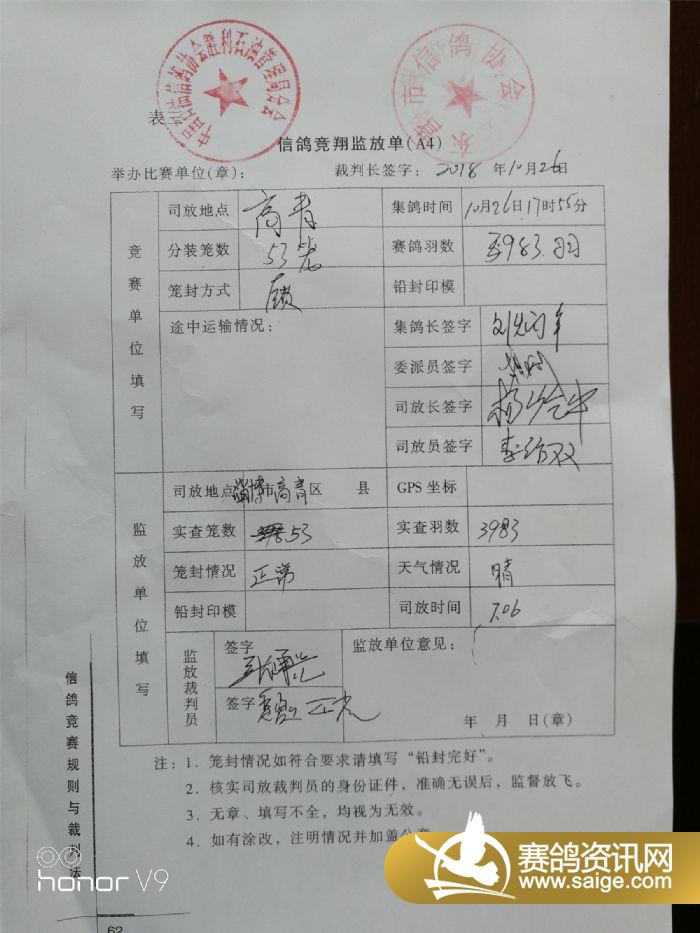 表三
信鸽竞翔监放单(A4)
举办比赛单位(章)： 裁判长签字： 2018 年10月26日
竞赛单位填写
司放地点 高青 集鸽时间 10月26日17时55分
分装笼数 53笼 赛鸽羽数 3983羽
笼封方式 锁 铅封印模
途中运输情况： 集鸽长签字
委派员签字
司放长签字
司放员签字
监放单位填写
司放地点 淄博市高青区 县 GPS 坐标
实查笼数 53 实查羽数 3983
笼封情况 正常 天气情况 晴
铅封印模 司放时间 7.06
监放裁判员 签字 监放单位意见：
签字
年 月 日(章)
注：1．笼封情况如符合要求请填写“铅封完好”。
2．核实司放裁判员的身份证件，准确无误后，监督放飞。
3．无章、填写不全，均视为无效。
4．如有涂改，注明情况并加盖公章
信鸽竞赛规则与裁判法
62
honor V9
赛鸽资讯网
www.saige.com